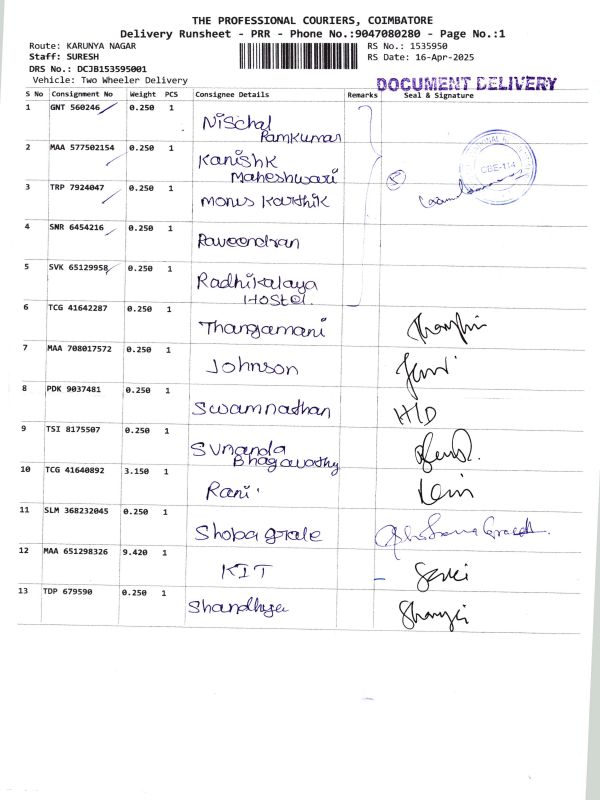 THE PROFESSIONAL COURIERS, COIMBATORE
Delivery Runsheet - PRR - Phone No.:9047080280 - Page No.:1
Route: KARUNYA NAGAR RS No.: 1535950
Staff: SURESH RS Date: 16-Apr-2025
DRS No.: DCJB153595001
Vehicle: Two Wheeler Delivery
DOCUMENT DELIVERY
S No Consignment No Weight PCS Consignee Details Remarks Seal & Signature
1 GNT 560246 0.250 1 Nischal
Ramkumar
2 MAA 577502154 0.250 1 Kanishk
Maheshwari
CBE-114
3 TRP 7924047 0.250 1 monus Karthik
5
4 SNR 6454216 0.250 1 Raveendran
5 SVK 65129958 0.250 1 Radhikalaya
Hostel.
6 TCG 41642287 0.250 1 Thangamani
7 MAA 708017572 0.250 1 Johnson
8 PDK 9037481 0.250 1 Swamnathan H/D
9 TSI 8175507 0.250 1 Sunanda
Bhagavathy
10 TCG 41640892 3.150 1 Rani
11 SLM 368232045 0.250 1 Shoba grale
12 MAA 651298326 9.420 1 KIT
13 TDP 679590 0.250 1 Shandhiya